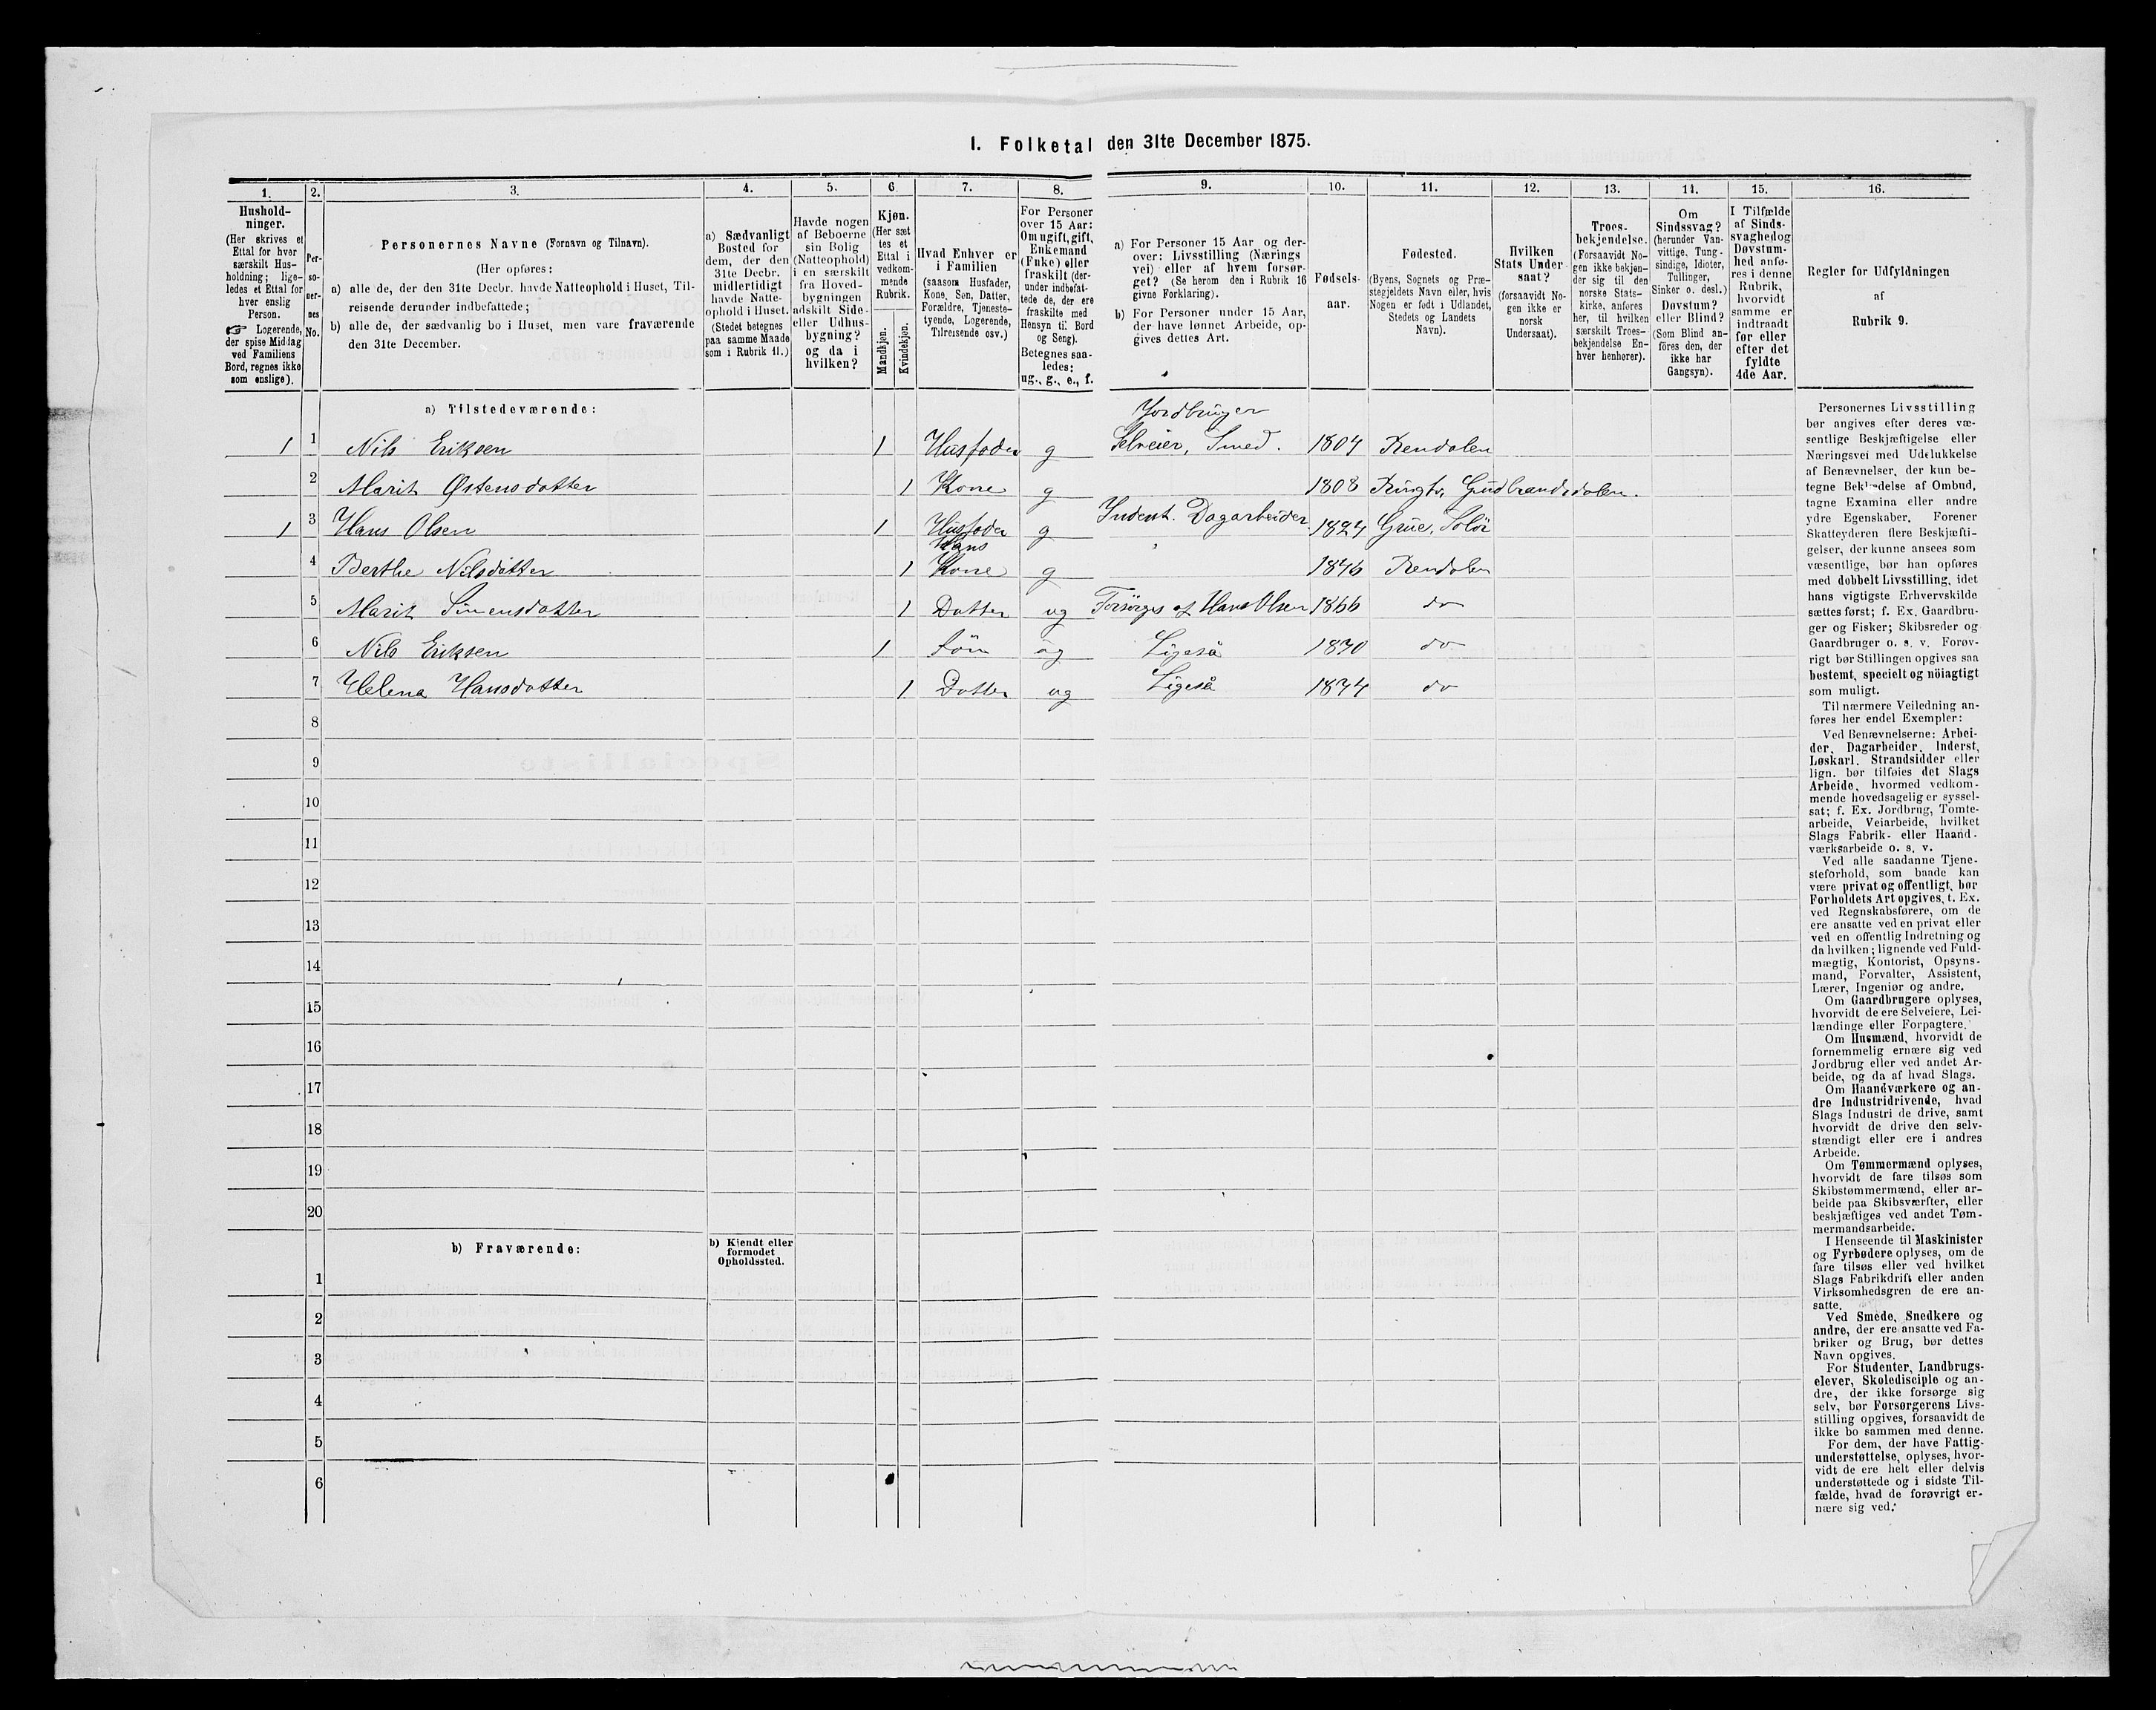 I. Folketal den 31te December 1875.
1. 2. 3. 4. 5. 6. 7. 8. 9. 10. 11. 12. 13. 14. 15. 16.
Hushold-
ninger.
(Her skrives et
Ettal for hver
særskilt Hus-
holdning; lige-
ledes et Ettal for
hver enslig
Person.
☞ Logerende,
der spise Middag
ved Familiens
Bord, regnes ikke
som enslige).
Per-
so-
ner-
nes
No.
Personernes Navne (Fornavn og Tilnavn).
(Her opføres:
a) alle de, der den 31te Decbr. havde Natteophold i Huset, Til-
reisende derunder indbefattede;
b) alle de, der sædvanlig bo i Huset, men vare fraværende
den 31te December.
a) Sædvanligt
Bosted for
dem, der den
31te Decbr.
midlertidigt
havde Natte-
ophold i Huset.
(Stedet betegnes
paa samme Maade
som i Rubrik 11.)
Havde nogen
af Beboerne
sin Bolig
(Natteophold)
i en særskilt
fra Hoved-
bygningen
adskilt Side-
eller Udhus-
bygning?
og da i
hvilken?
Kjøn.
(Her sæt
tes et
Ettal i
vedkom-
mende
Rubrik.
Mandkjøn.
Kvindekjøn.
Hvad Enhver er
i Familien
(saasom Husfader,
Kone, Søn, Datter,
Forældre, Tjeneste-
tyende, Logerende,
Tilreisende osv.)
For Personer
over 15 Aar:
Om ugift, gift,
Enkemand
(Enke) eller
fraskilt (der-
under indbefat-
tede de, der ere
fraskilte med
Hensyn til Bord
og Seng).
Betegnes saa-
ledes:
ug., g., e., f.
a) For Personer 15 Aar og der-
over: Livsstilling (Nærings
vei) eller af hvem forsør-
get? (Se herom den i Rubrik 16
givne Forklaring).
b) For Personer under 15 Aar,
der have lønnet Arbeide, op-
gives dettes Art.
Fødsels-
aar.
Fødested.
(Byens, Sognets og Præ-
stegjeldets Navn eller, hvis
Nogen er født i Udlandet,
Stedets og Landets
Navn).
Hvilken
Stats Under
saat?
(forsaavidt No-
gen ikke er
norsk
Undersaat).
Troes-
bekjendelse.
(Forsaavidt No-
gen ikke bekjen-
der sig til den
norske Stats-
kirke, anføres
her, til hvilken
særskilt Troes-
bekjendelse En-
hver henhører).
Om
Sindssvag?
(herunder Van-
vittige, Tung-
sindige, Idioter,
Tullinger,
Sinker o. desl.)
Døvstum?
eller Blind?
(Som Blind an-
føres den, der
ikke har
Gangsyn).
I Tilfælde
af Sinds-
svaghed og
Døvstum-
hed anfø-
res i denne
Rubrik,
hvorvidt
samme er
indtraadt
før eller
efter det
fyldte
4de Aar.
Regler for Udfyldningen
af
Rubrik 9.
a) Tilstedeværende:
Jordbruger
1 1 Nils Eriksen 1 Husfader g Selveier, Smed. 1804 Rendalen
2 Marit Østensdatter 1 Kone g 1808 Gudbrandsdalen.
1 3 Hans Olsen 1 Husfader g Inderst. Dagarbeider. 1824 Grue, Solör
Hans
4 Berthe Nilsdatter 1 Kone g 1846 Rendalen
5 Marit Simensdatter 1 Datter ug Forsörges af Hans Olsen 1866 do
6 Nils Eriksen 1 Sön ug Ligeså 1870 do
7 Helena Hansdatter 1 Datter ug Ligeså 1874 do
8
9
10
11
12
13
14
15
16
17
18
19
20
b) Fraværende:
b) Kjendt eller
formodet
Opholdssted.
1
2
3
4
5
6
Personernes Livsstilling
bør angives efter deres væ-
sentlige Beskjæftigelse eller
Næringsvei med Udelukkelse
af Benævnelser, der kun be-
tegne Beklædelse af Ombud,
tagne Examina eller andre
ydre Egenskaber. Forener
Skatteyderen flere Beskjæfti-
gelser, der kunne ansees som
væsentlige, bør han opføres
med dobbelt Livsstilling, idet
hans vigtigste Erhvervskilde
sættes først; f. Ex. Gaardbru-
ger og Fisker; Skibsreder og
Gaardbruger o. s. v. Forøv-
rigt bør Stillingen opgives saa
bestemt, specielt og nöiagtigt
som muligt.
Til nærmere Veiledning an-
føres her endel Exempler:
Ved Benævnelserne: Arbei-
der, Dagarbeider, Inderst,
Løskarl, Strandsidder eller
lign. bør tilføies det Slags
Arbeide, hvormed vedkom-
mende hovedsagelig er syssel-
sat; f. Ex. Jordbrug, Tomte-
arbeide, Veiarbeide, hvilket
Slags Fabrik- eller Haand-
værksarbeide o. s. v.
Ved alle saadanne Tjene-
steforhold, som baade kan
være privat og offentligt, bør
Forholdets Art opgives, t. Ex.
ved Regnskabsførere, om de
ere ansatte ved en privat eller
ved en offentlig Indretning og
da hvilken; lignende ved Fuld-
mægtig, Kontorist, Opsyns-
mand, Forvalter, Assistent,
Lærer, Ingeniør og andre.
Om Gaardbrugere oplyses,
hvorvidt de ere Selveiere, Lei-
lændinge eller Forpagtere.
Om Husmænd, hvorvidt de
fornemmelig ernære sig ved
Jordbrug eller ved andet Ar-
beide, og da af hvad Slags.
Om Haandværkere og an-
dre Industridrivende, hvad
Slags Industri de drive, samt
hvorvidt de drive den selv-
stændigt eller ere i andres
Arbeide.
Om Tømmermænd oplyses,
hvorvidt de fare tilsøs som
Skibstømmermænd, eller ar-
beide paa Skibsværfter, eller
beskjæftiges ved andet Tøm-
mermandsarbeide.
I Henseende til Maskinister
og Fyrbødere oplyses, om de
fare tilsøs eller ved hvilket
Slags Fabrikdrift eller anden
Virksomhedsgren de ere an-
satte.
Ved Smede, Snedkere og
andre, der ere ansatte ved Fa-
briker og Brug, bør dettes
Navn opgives.
For Studenter, Landbrugs-
elever, Skoledisciple og an-
dre, der ikke forsørge sig
selv, bør Forsørgerens Livs-
stilling opgives, forsaavidt de
ikke bo sammen med denne.
For dem, der have Fattig-
understøttelse, oplyses, hvor-
vidt de ere helt eller delvis
understøttede og i sidste Til-
fælde, hvad de forøvrigt er-
nære sig ved.